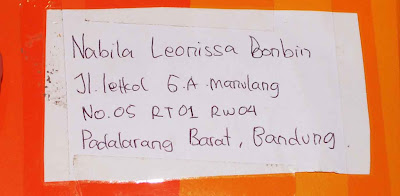 Nabila Leonissa Bonbin
Jl. letkol G.A. manulang
No.05 RT01 RW04
Padalarang Barat, Bandung.